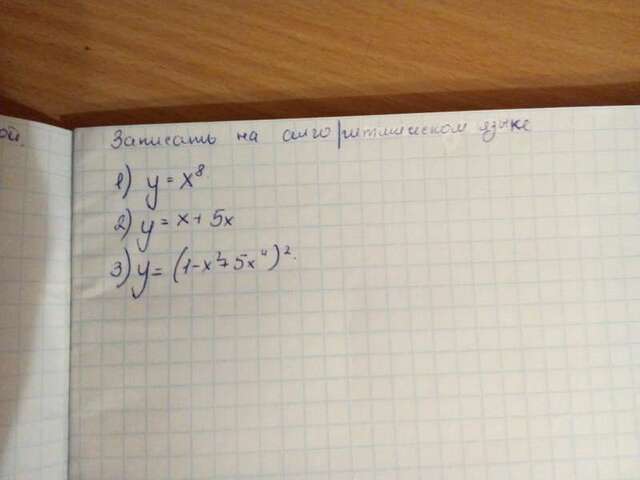 ой.
Записать на алгоритмическом языке
1) y = x⁸
2) y = x + 5x
3) y = (1 - x² + 5x⁴)².